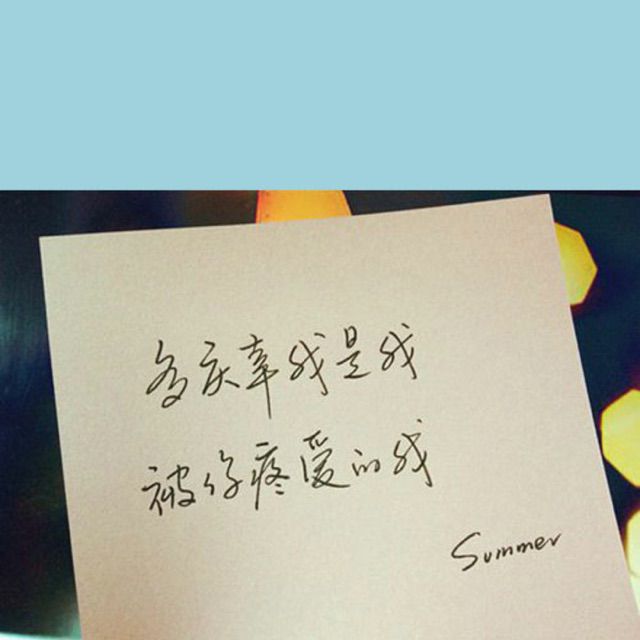 多庆幸我是我
被你疼爱的我
Summer